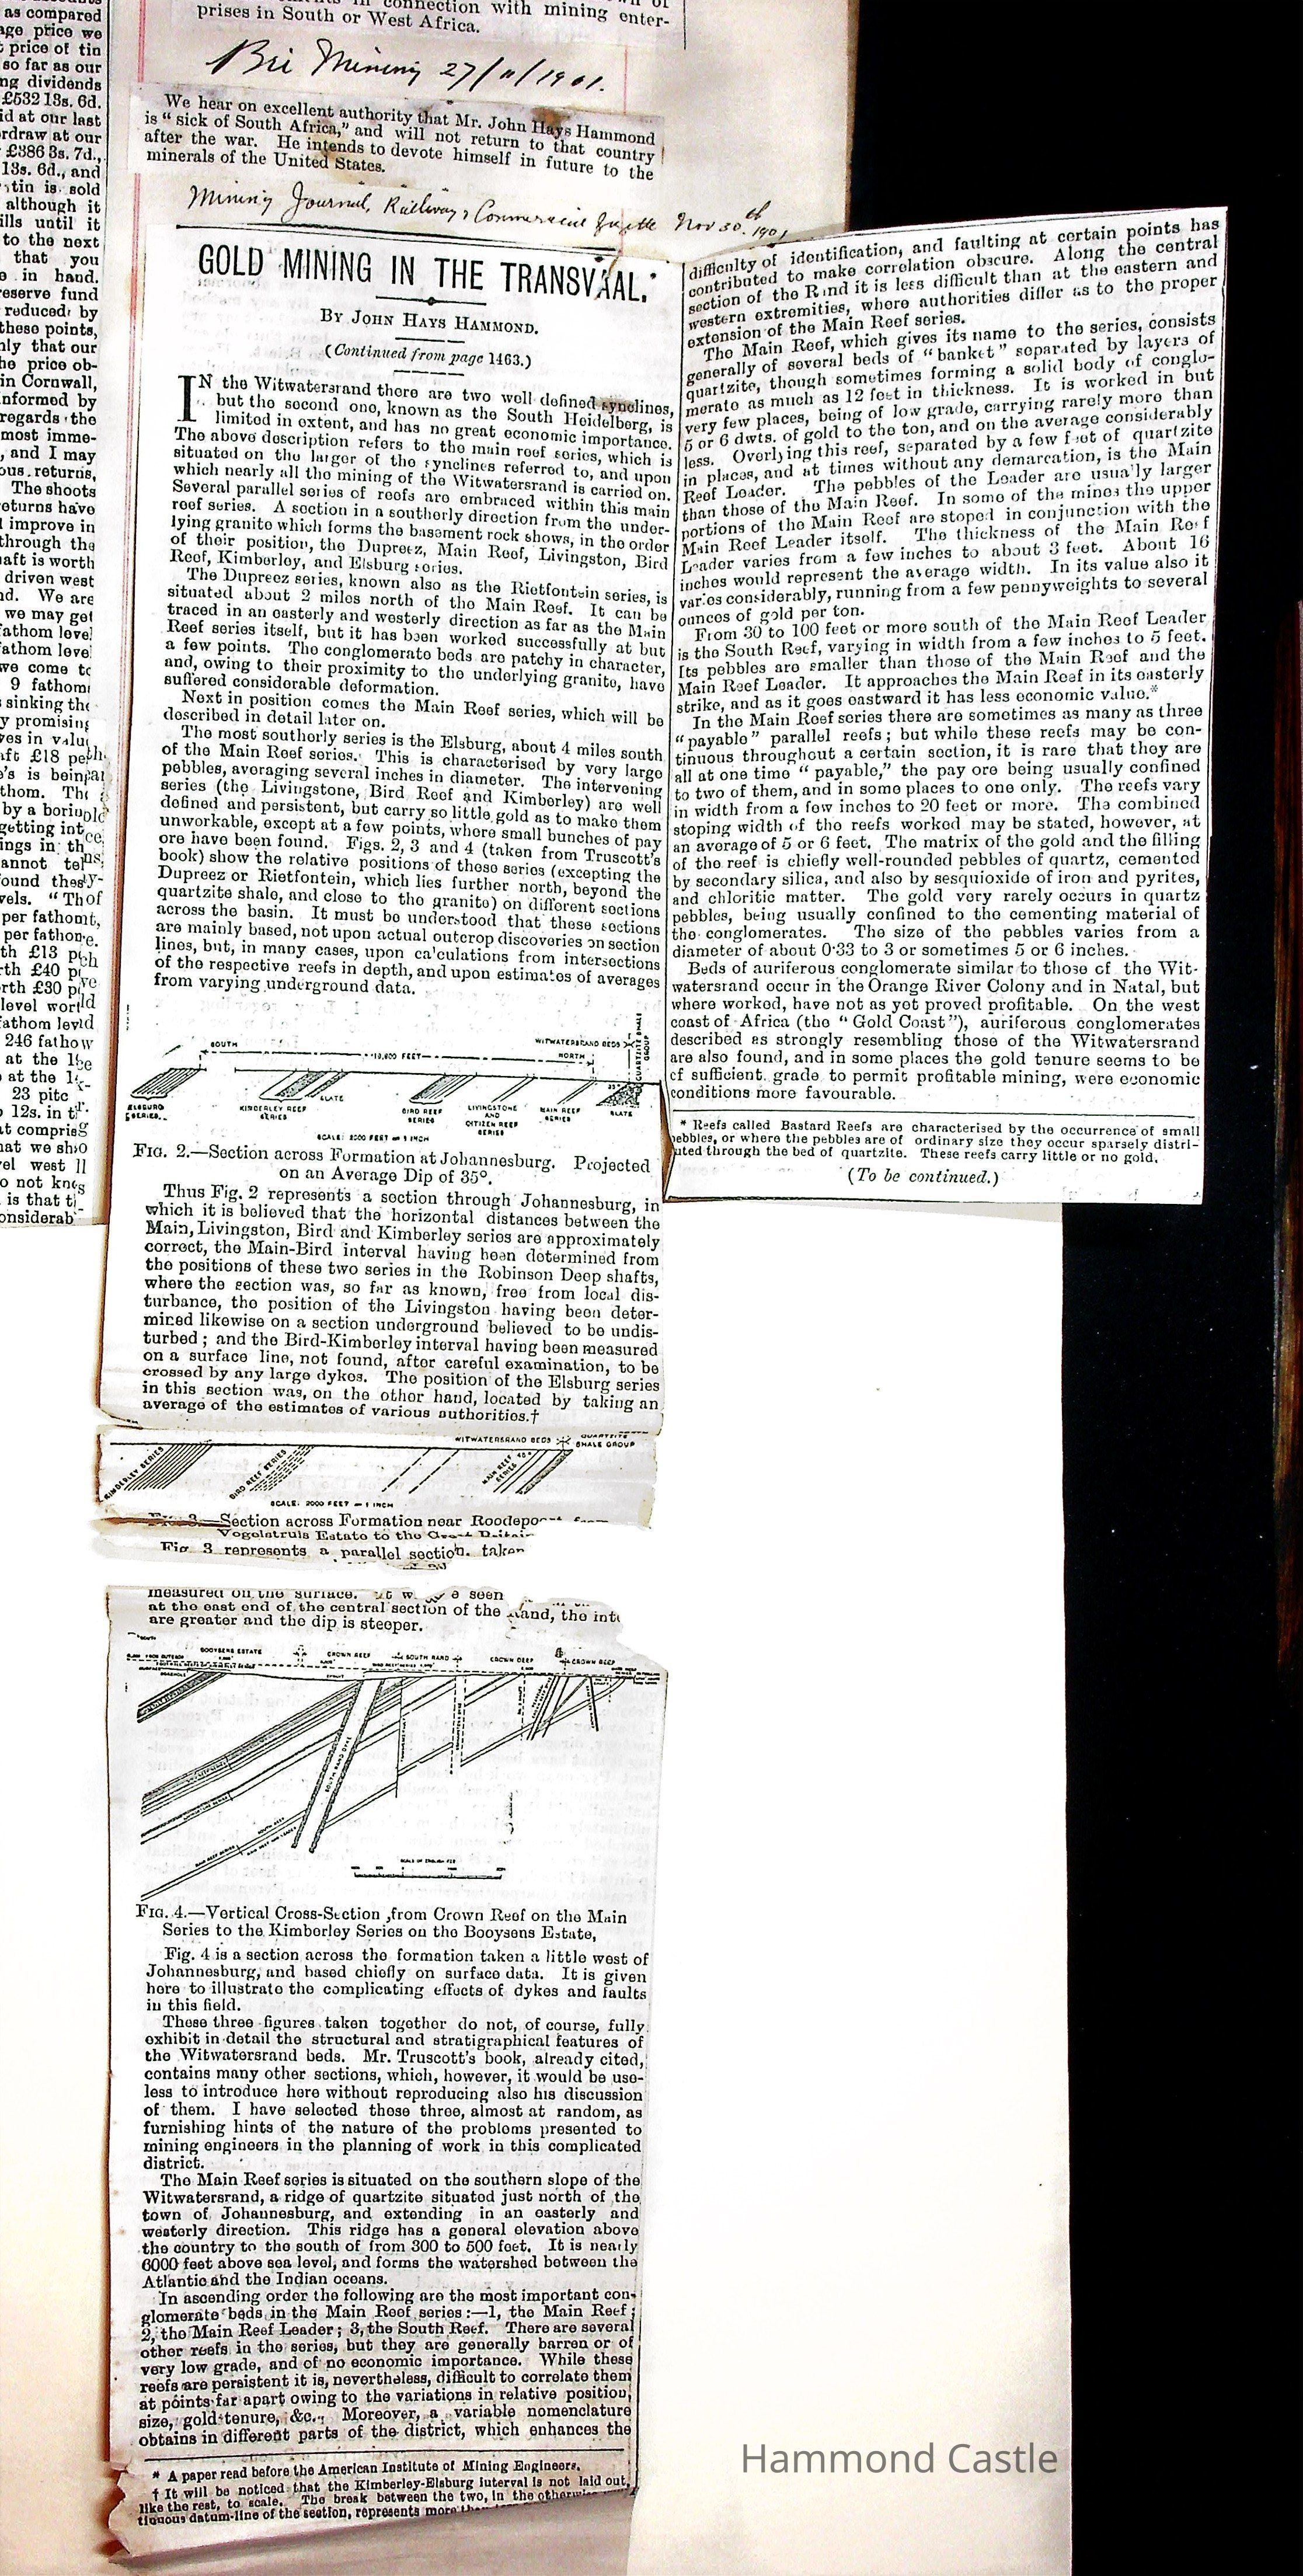 as compared
age price we
price of tin
so far as our
ng dividends
£532 13s. 6d.
id at our last
rdraw at our
£386 3s. 7d.,
13s. 6d., and
tin is sold
although it
ills until it
to the next
that you
in hand.
eserve fund
reduced by
these points,
nly that our
he price ob-
in Cornwall,
nformed by
regards the
most imme-
, and I may
ous returns,
The shoots
eturns have
improve in
through the
aft is worth
driven west
nd. We are
we may get
fathom level
fathom level
we come to
9 fathom
sinking the
y promising
connection with mining enter-
prises in South or West Africa.
Bri Mining 27/11/1901.
We hear on excellent authority that Mr. John Hays Hammond
is "sick of South Africa," and will not return to that country
after the war. He intends to devote himself in future to the
minerals of the United States.
Mining Journal, Railway & Commercial Gazette Nov 30th 1901
GOLD MINING IN THE TRANSVAAL.*
BY JOHN HAYS HAMMOND.
(Continued from page 1463.)
IN the Witwatersrand there are two well defined synclines,
but the second one, known as the South Heidelberg, is
limited in extent, and has no great economic importance.
The above description refers to the main reef series, which is
situated on the larger of the synclines referred to, and upon
which nearly all the mining of the Witwatersrand is carried on.
Several parallel series of reefs are embraced within this main
reef series. A section in a southerly direction from the under-
lying granite which forms the basement rock shows, in the order
of their position, the Dupreez, Main Reef, Livingston, Bird
Reef, Kimberley, and Elsburg series.
The Dupreez series, known also as the Rietfontein series, is
situated about 2 miles north of the Main Reef. It can be
traced in an easterly and westerly direction as far as the Main
Reef series itself, but it has been worked successfully at but
a few points. The conglomerate beds are patchy in character,
and, owing to their proximity to the underlying granite, have
suffered considerable deformation.
Next in position comes the Main Reef series, which will be
described in detail later on.
The most southerly series is the Elsburg, about 4 miles south
of the Main Reef series. This is characterised by very large
pebbles, averaging several inches in diameter. The intervening
series (the Livingstone, Bird Reef and Kimberley) are well
defined and persistent, but carry so little gold as to make them
unworkable, except at a few points, where small bunches of pay
ore have been found. Figs. 2, 3 and 4 (taken from Truscott's
book) show the relative positions of these series (excepting the
Dupreez or Rietfontein, which lies further north, beyond the
quartzite shale, and close to the granite) on different sections
across the basin. It must be understood that these sections
are mainly based, not upon actual outcrop discoveries on section
lines, but, in many cases, upon calculations from intersections
of the respective reefs in depth, and upon estimates of averages
from varying underground data.
SOUTH
10,600 FEET
WITWATERSRAND BEDS
NORTH
QUARTZITE SHALE GROUP
ELSBURG SERIES
KIMBERLEY REEF SERIES
SLATE
BIRD REEF SERIES
LIVINGSTONE AND CITIZEN REEF SERIES
MAIN REEF SERIES
SLATE
SCALE: 2000 FEET = 1 INCH
FIG. 2.—Section across Formation at Johannesburg. Projected
on an Average Dip of 35°.
Thus Fig. 2 represents a section through Johannesburg, in
which it is believed that the horizontal distances between the
Main, Livingston, Bird and Kimberley series are approximately
correct, the Main-Bird interval having been determined from
the positions of these two series in the Robinson Deep shafts,
where the section was, so far as known, free from local dis-
turbance, the position of the Livingston having been deter-
mined likewise on a section underground believed to be undis-
turbed; and the Bird-Kimberley interval having been measured
on a surface line, not found, after careful examination, to be
crossed by any large dykes. The position of the Elsburg series
in this section was, on the other hand, located by taking an
average of the estimates of various authorities.†
WITWATERSRAND BEDS
QUARTZITE SHALE GROUP
KIMBERLEY SERIES
BIRD REEF SERIES
MAIN REEF SERIES
SCALE: 2000 FEET = 1 INCH
Section across Formation near Roodepoort
Vogelstruis Estate to the
Fig. 3 represents a parallel section taken
measured on the surface. seen
at the east end of the central section of the Rand, the int
are greater and the dip is steeper.
BOOYSENS ESTATE
CROWN REEF
SOUTH RAND
CROWN DEEP
CROWN REEF
SOUTH RAND DYKE
SCALE OF ENGLISH FEET
FIG. 4.—Vertical Cross-Section from Crown Reef on the Main
Series to the Kimberley Series on the Booysens Estate,
Fig. 4 is a section across the formation taken a little west of
Johannesburg, and based chiefly on surface data. It is given
here to illustrate the complicating effects of dykes and faults
in this field.
These three figures taken together do not, of course, fully
exhibit in detail the structural and stratigraphical features of
the Witwatersrand beds. Mr. Truscott's book, already cited,
contains many other sections, which, however, it would be use-
less to introduce here without reproducing also his discussion
of them. I have selected these three, almost at random, as
furnishing hints of the nature of the problems presented to
mining engineers in the planning of work in this complicated
district.
The Main Reef series is situated on the southern slope of the
Witwatersrand, a ridge of quartzite situated just north of the
town of Johannesburg, and extending in an easterly and
westerly direction. This ridge has a general elevation above
the country to the south of from 300 to 500 feet. It is nearly
6000 feet above sea level, and forms the watershed between the
Atlantic and the Indian oceans.
In ascending order the following are the most important con-
glomerate beds in the Main Reef series:—1, the Main Reef;
2, the Main Reef Leader; 3, the South Reef. There are several
other reefs in the series, but they are generally barren or of
very low grade, and of no economic importance. While these
reefs are persistent it is, nevertheless, difficult to correlate them
at points far apart owing to the variations in relative position,
size, gold tenure, &c. Moreover, a variable nomenclature
obtains in different parts of the district, which enhances the
* A paper read before the American Institute of Mining Engineers.
† It will be noticed that the Kimberley-Elsburg interval is not laid out,
like the rest, to scale. The break between the two, in the otherwise
tinuous datum-line of the section, represents more
difficulty of identification, and faulting at certain points has
contributed to make correlation obscure. Along the central
section of the Rand it is less difficult than at the eastern and
western extremities, where authorities differ as to the proper
extension of the Main Reef series.
The Main Reef, which gives its name to the series, consists
generally of several beds of "banket" separated by layers of
quartzite, though sometimes forming a solid body of conglo-
merate as much as 12 feet in thickness. It is worked in but
very few places, being of low grade, carrying rarely more than
5 or 6 dwts. of gold to the ton, and on the average considerably
less. Overlying this reef, separated by a few feet of quartzite
in places, and at times without any demarcation, is the Main
Reef Leader. The pebbles of the Leader are usually larger
than those of the Main Reef. In some of the mines the upper
portions of the Main Reef are stoped in conjunction with the
Main Reef Leader itself. The thickness of the Main Reef
Leader varies from a few inches to about 3 feet. About 16
inches would represent the average width. In its value also it
varies considerably, running from a few pennyweights to several
ounces of gold per ton.
From 30 to 100 feet or more south of the Main Reef Leader
is the South Reef, varying in width from a few inches to 5 feet.
Its pebbles are smaller than those of the Main Reef and the
Main Reef Leader. It approaches the Main Reef in its easterly
strike, and as it goes eastward it has less economic value.*
In the Main Reef series there are sometimes as many as three
"payable" parallel reefs; but while these reefs may be con-
tinuous throughout a certain section, it is rare that they are
all at one time "payable," the pay ore being usually confined
to two of them, and in some places to one only. The reefs vary
in width from a few inches to 20 feet or more. The combined
stoping width of the reefs worked may be stated, however, at
an average of 5 or 6 feet. The matrix of the gold and the filling
of the reef is chiefly well-rounded pebbles of quartz, cemented
by secondary silica, and also by sesquioxide of iron and pyrites,
and chloritic matter. The gold very rarely occurs in quartz
pebbles, being usually confined to the cementing material of
the conglomerates. The size of the pebbles varies from a
diameter of about 0·33 to 3 or sometimes 5 or 6 inches.
Beds of auriferous conglomerate similar to those of the Wit-
watersrand occur in the Orange River Colony and in Natal, but
where worked, have not as yet proved profitable. On the west
coast of Africa (the "Gold Coast"), auriferous conglomerates
described as strongly resembling those of the Witwatersrand
are also found, and in some places the gold tenure seems to be
of sufficient grade to permit profitable mining, were economic
conditions more favourable.
* Reefs called Bastard Reefs are characterised by the occurrence of small
pebbles, or where the pebbles are of ordinary size they occur sparsely distri-
uted through the bed of quartzite. These reefs carry little or no gold.
(To be continued.)
Hammond Castle